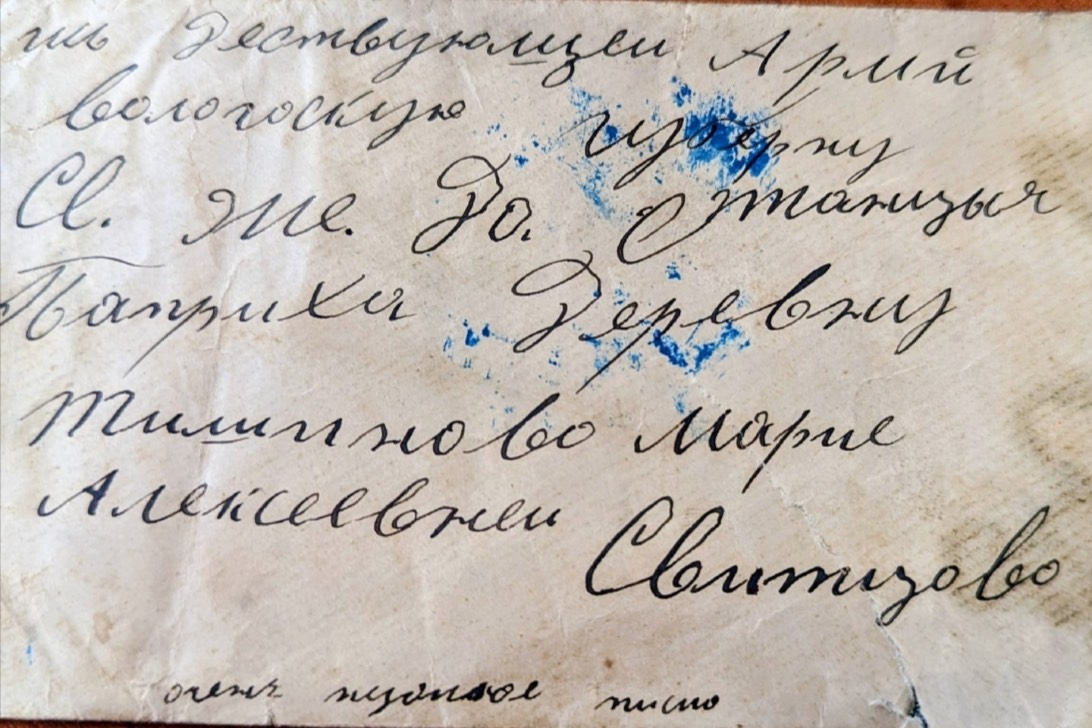 изь Деиствующеи Армй
вологоскую губерну
Св. Же. До. Станцыя
Паприха Деревну
Тилипново Марие
Алексеевнеи
Свитцово
очень нужное писмо